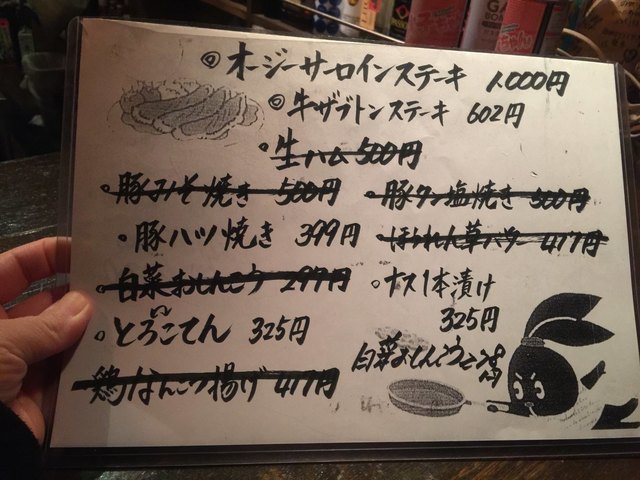 ◎オージーサーロインステーキ 1,000円
◎牛ザブトンステーキ 602円
・生ハム 500円
・豚みそ焼き 500円
・豚タン塩焼き 500円
・豚ハツ焼き 399円
・ほうれん草バター 417円
・白菜おしんこう 297円
・ナス1本漬け
325円
・ところてん 325円
白菜おしんこう
・鶏なんこつ揚げ 417円